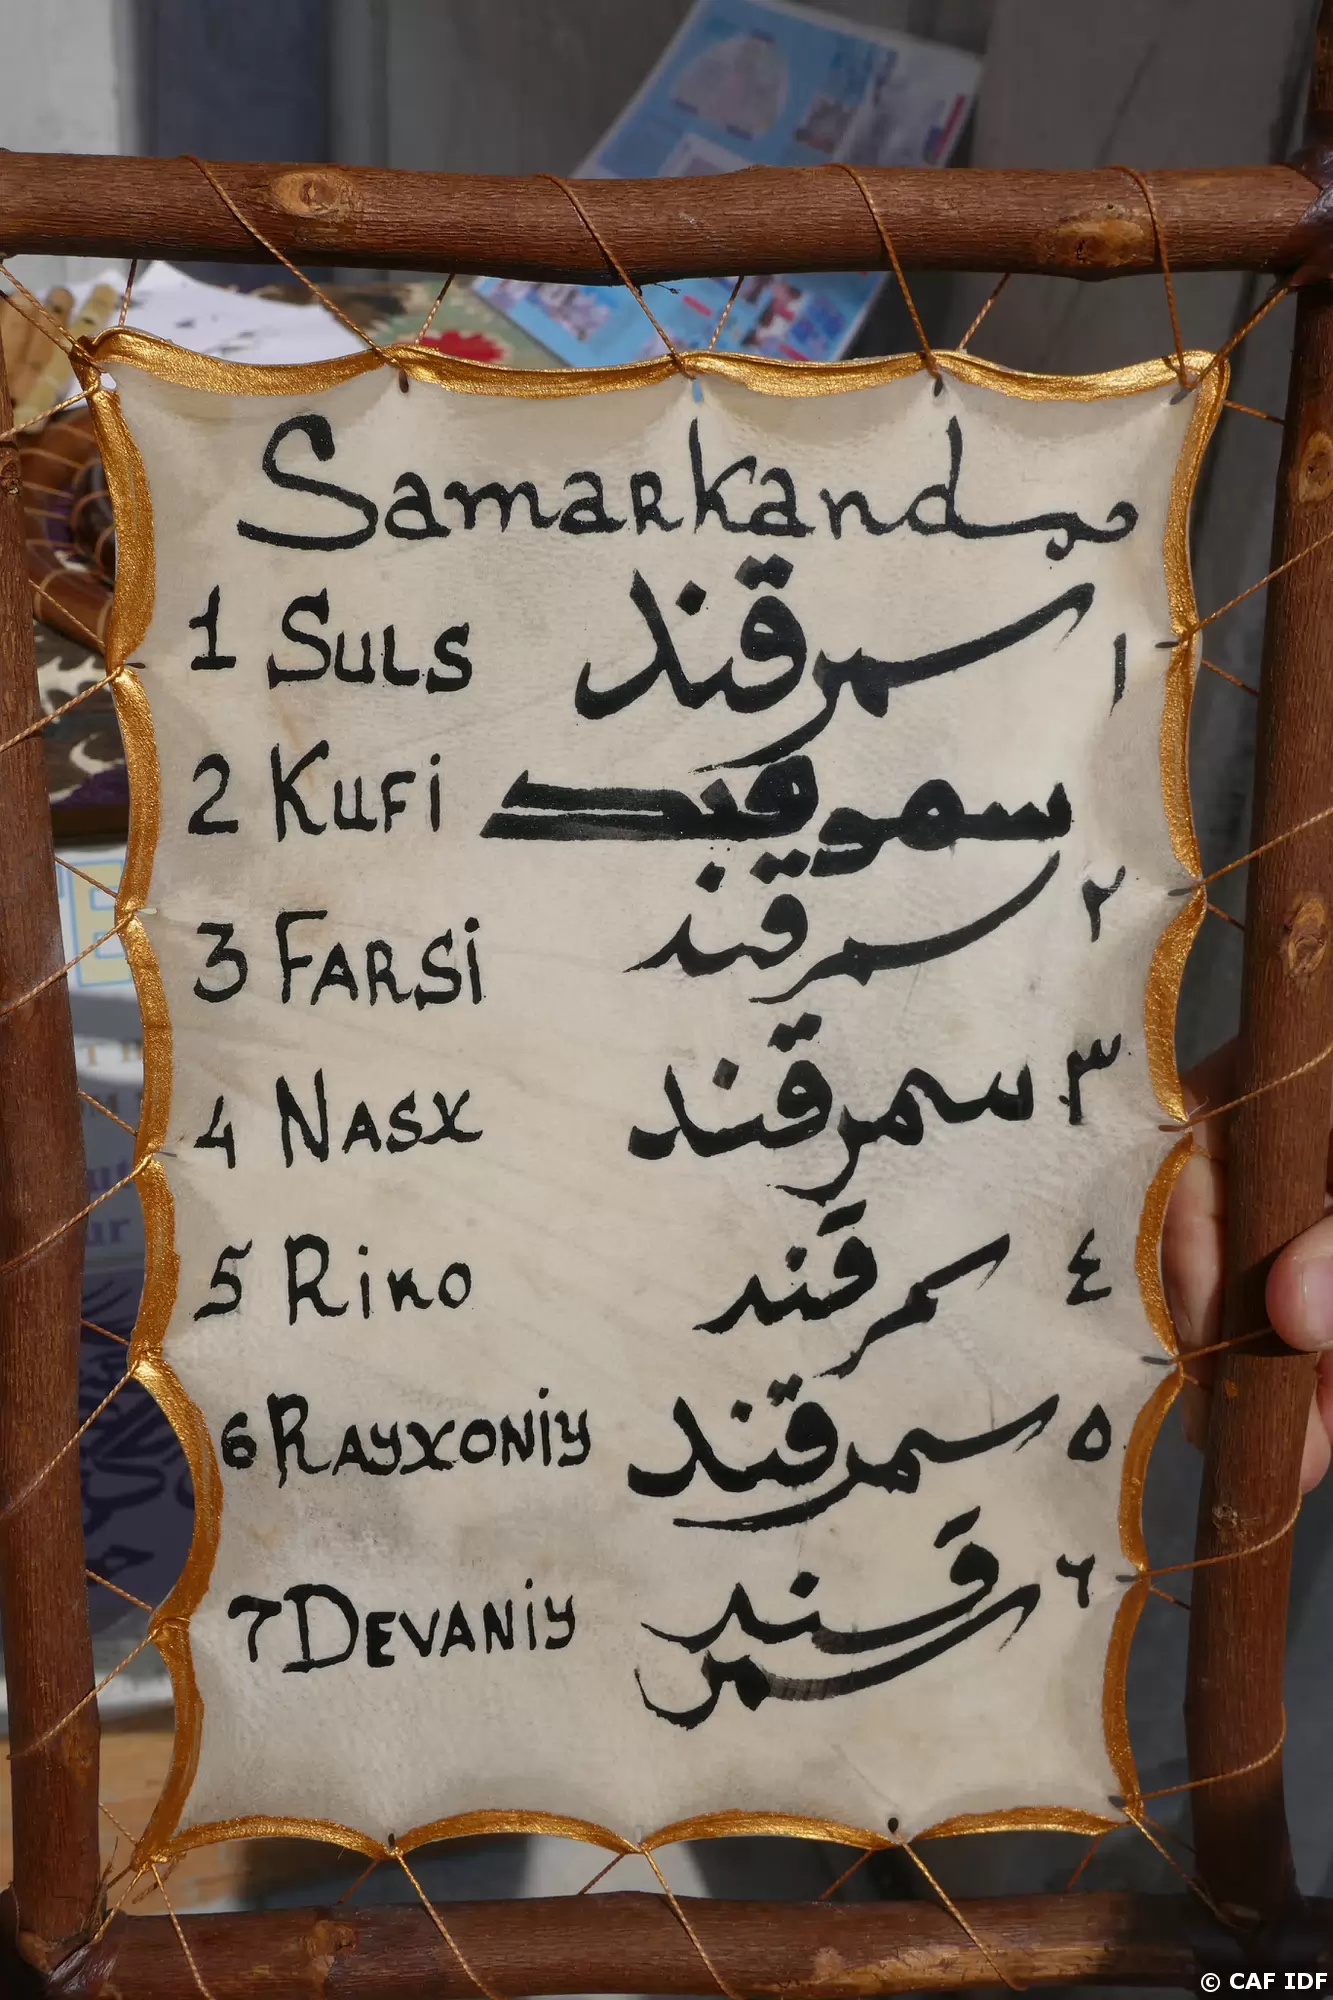 Samarkand
1 Suls سمرقند ١
2 Kufi سمرقند ٢
3 Farsi سمرقند ٣
4 Nasx سمرقند
5 Riko سمرقند ٤
6 Rayxoniy سمرقند ٥
7 Devaniy سمرقند ٦
© CAF IDF